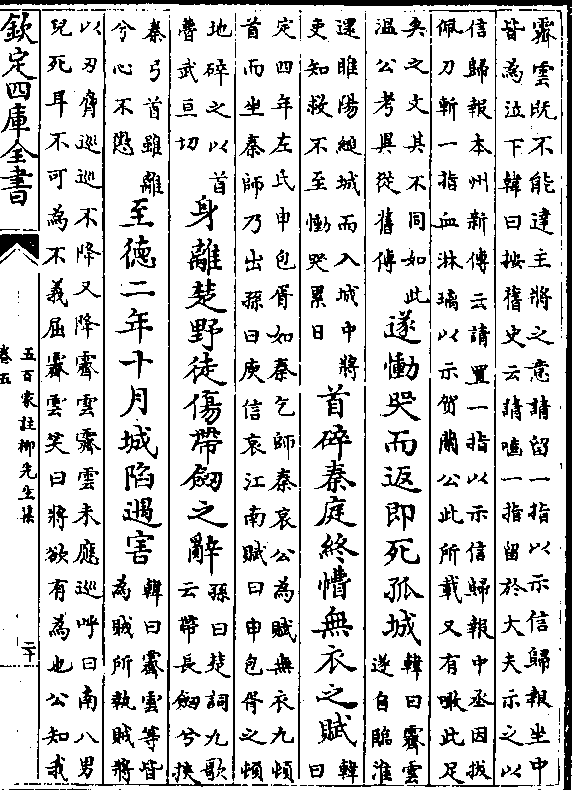 霽雲既不能達主將之意請留一指以示信歸報坐中
皆為泣下韓曰按舊史云請嚙一指留於大夫示之以
信歸報本州新傳云請置一指以示信歸報中丞因拔
佩刀斬一指血淋璃以示賀蘭公此所載又有噉此足
矣之文其不同如此
温公考異從舊傳
遂慟哭而返即死孤城
韓曰霽雲
遂自臨淮
還睢陽縋城而入城中將
吏知救不至慟哭累日
首碎秦庭終懵無衣之賦
韓
曰
定四年左氏申包胥如秦乞師秦哀公為賦無衣九頓
首而坐秦師乃出孫曰庾信哀江南賦曰申包胥之頓
地碎之以首
瞢武亘切
身離楚野徒傷帶劒之辭
孫曰楚詞九歌
云帶長劒兮挾
秦弓首雖離
兮心不懲
至德二年十月城陷遇害
韓曰霽雲等皆
為賊所執賊將
以刃脅巡巡不降又降霽雲霽雲未應巡呼曰南八男
兒死耳不可為不義屈霽雲笑曰將欲有為也公知我
欽定四庫全書
五百家註柳先生集
卷五
二十